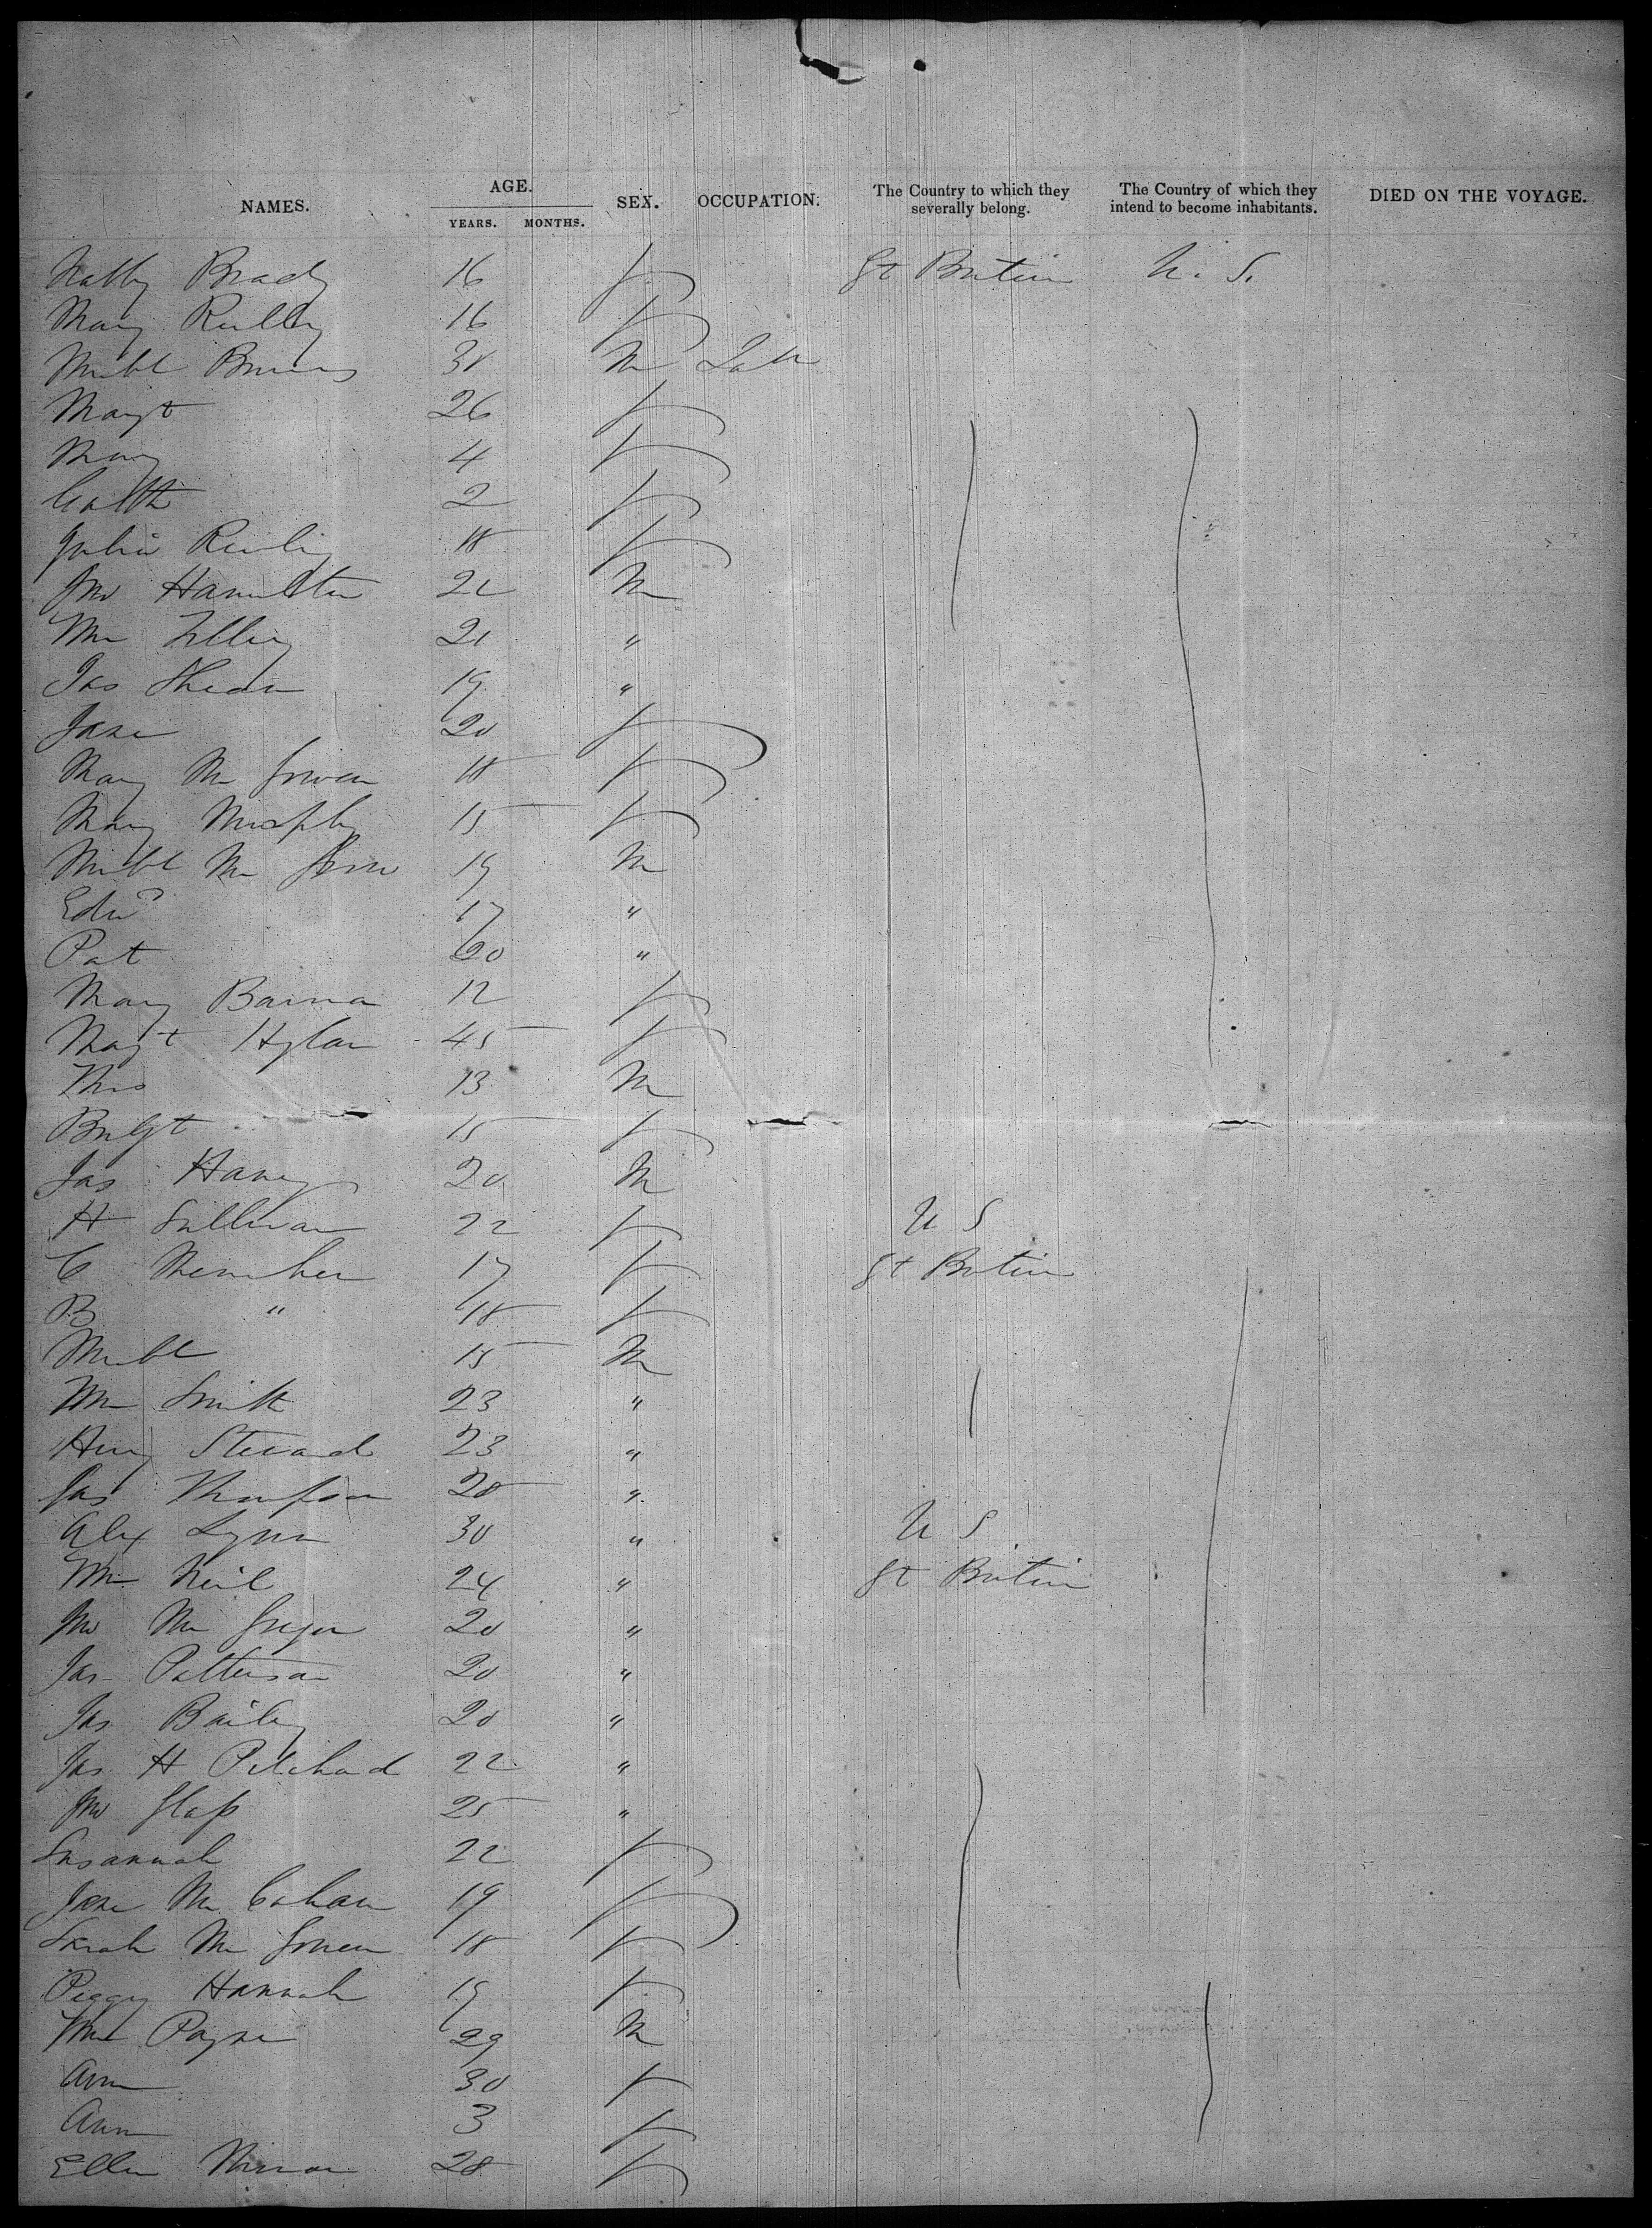 NAMES. AGE. YEARS. MONTHS. SEX. OCCUPATION. The Country to which they severally belong. The Country of which they intend to become inhabitants. DIED ON THE VOYAGE.
Brady 16 F Gt Britain U. S.
Mary Reilly 16 F
Michl 30 M Lab
Margt 26 F
Mary 4 F
Cathr 2 F
Julia 18 F
Jno Hamilton 22 M
Wm 21 "
Jas 19 "
Jane 20 F
Mary Mc Gowen 18 F
Mary Murphy 15 F
Michl Mc 19 M
Edwd 17 "
Pat 20 "
Mary 12 F
Margt Hylan 45 F
Thos 13 M
Bridgt 15 F
Jas Haney 20 M
H Sullivan 22 F U S
C 17 F Gt Britain
B " 18 F
Michl 15 M
Wm Smith 23 "
Henry Steward 23 "
Jas Thompson 28 "
Alex Lynn 30 " U S
Wm Neil 24 " Gt Britain
Jno Mc Gregor 20 "
Jas Patterson 20 "
Jas Bailey 20 "
Jas H Pritchard 22 "
Jno Glass 25 "
Susannah 22 F
Jane Mc Cahan 19 F
Sarah Mc Gowen 18 F
Peggy Hannah 19 F
Wm Payne 29 M
Ann 30 F
Ann 3 F
Ellen 28 F